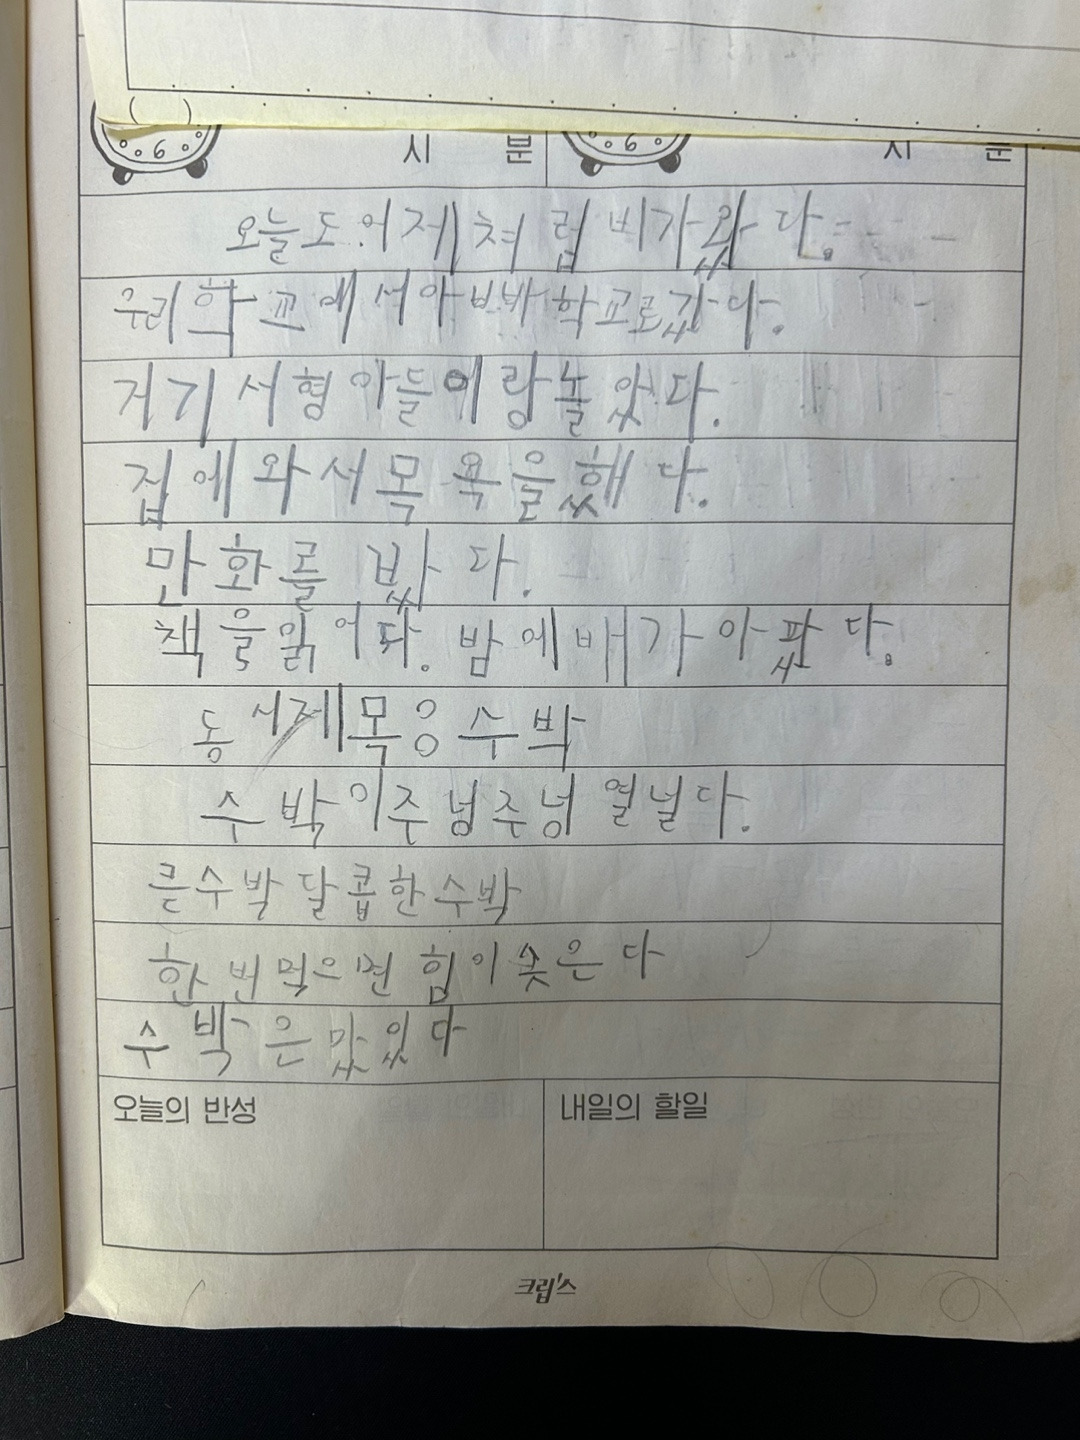 6 시 분 6 시 분
오늘도 어제처럼 비가왔다.
우리학교에서아빠학교로갔다.
거기서형아들이랑놀았다.
집에와서목욕을했다.
만화를 밨다.
책을읽어다. 밤에배가아팠다.
동시제목응 수박
수박이주넝주넝 열닐다.
큰수박 달콥한수박
한번먹으면 힘이솟은다
수박은맛있다
오늘의 반성 내일의 할일
크립스